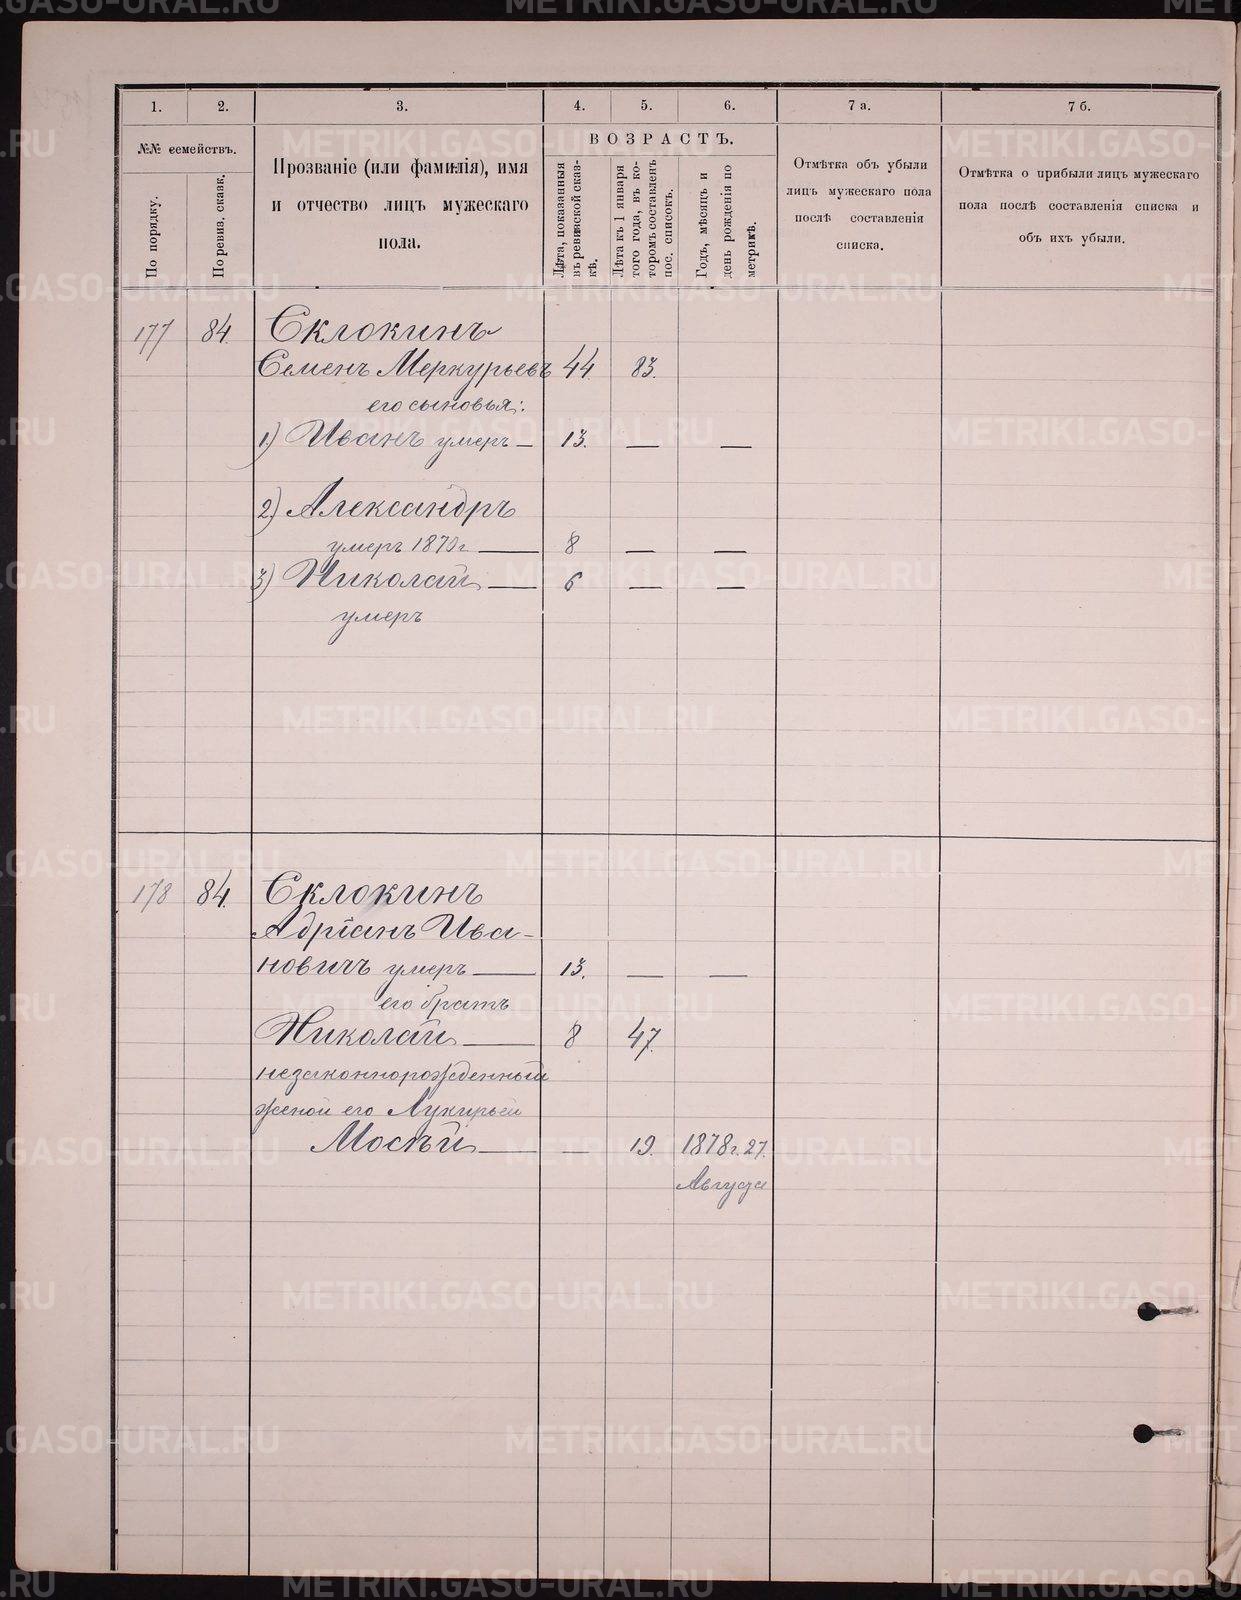 1. 2. 3. 4. 5. 6. 7 а. 7 б.
№№ семействъ.
По порядку.
По ревиз. сказк.
Прозваніе (или фамилія), имя
и отчество лицъ мужескаго
пола.
ВОЗРАСТЪ.
Лѣта, показанныя
въ ревизской сказ-
кѣ.
Лѣта къ 1 января
того года, въ ко-
торомъ составленъ
пос. списокъ.
Годъ, мѣсяцъ и
день рожденія по
метрикѣ.
Отмѣтка объ убыли
лицъ мужескаго пола
послѣ составленія
списка.
Отмѣтка о прибыли лицъ мужескаго
пола послѣ составленія списка и
объ ихъ убыли.
177 84. Склокинъ
Семенъ Меркурьевъ 44. 83.
его сыновья:
1.) Иванъ умеръ — 13. — —
2.) Александръ
умеръ 1870 г. — 8 — —
3) Николай — 6 — —
умеръ
178 84. Склокинъ
Адріанъ Ива-
новичъ умеръ — 13. — —
его братъ
Николай — 8 47.
незаконнорожденный
женой его Лукирьей
Мосѣй — — 19. 1878 г. 27.
Августа
METRIKI.GASO-URAL.RU